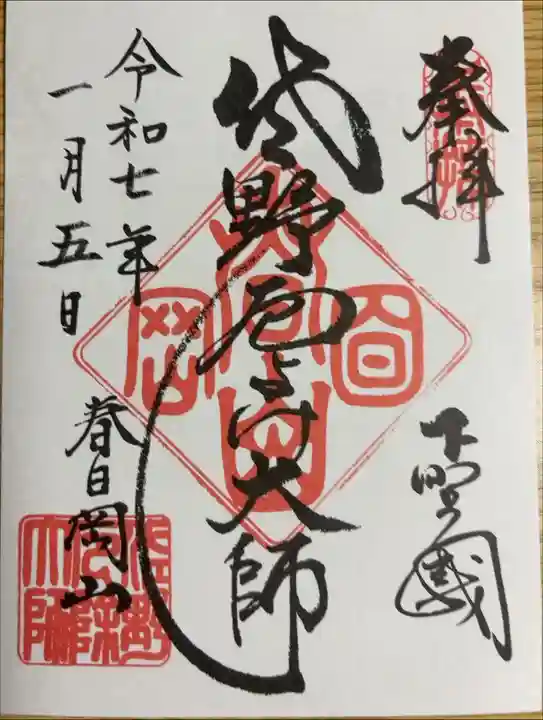 奉拝
下野國
佐野厄よけ大師
令和七年
一月五日
春日岡山